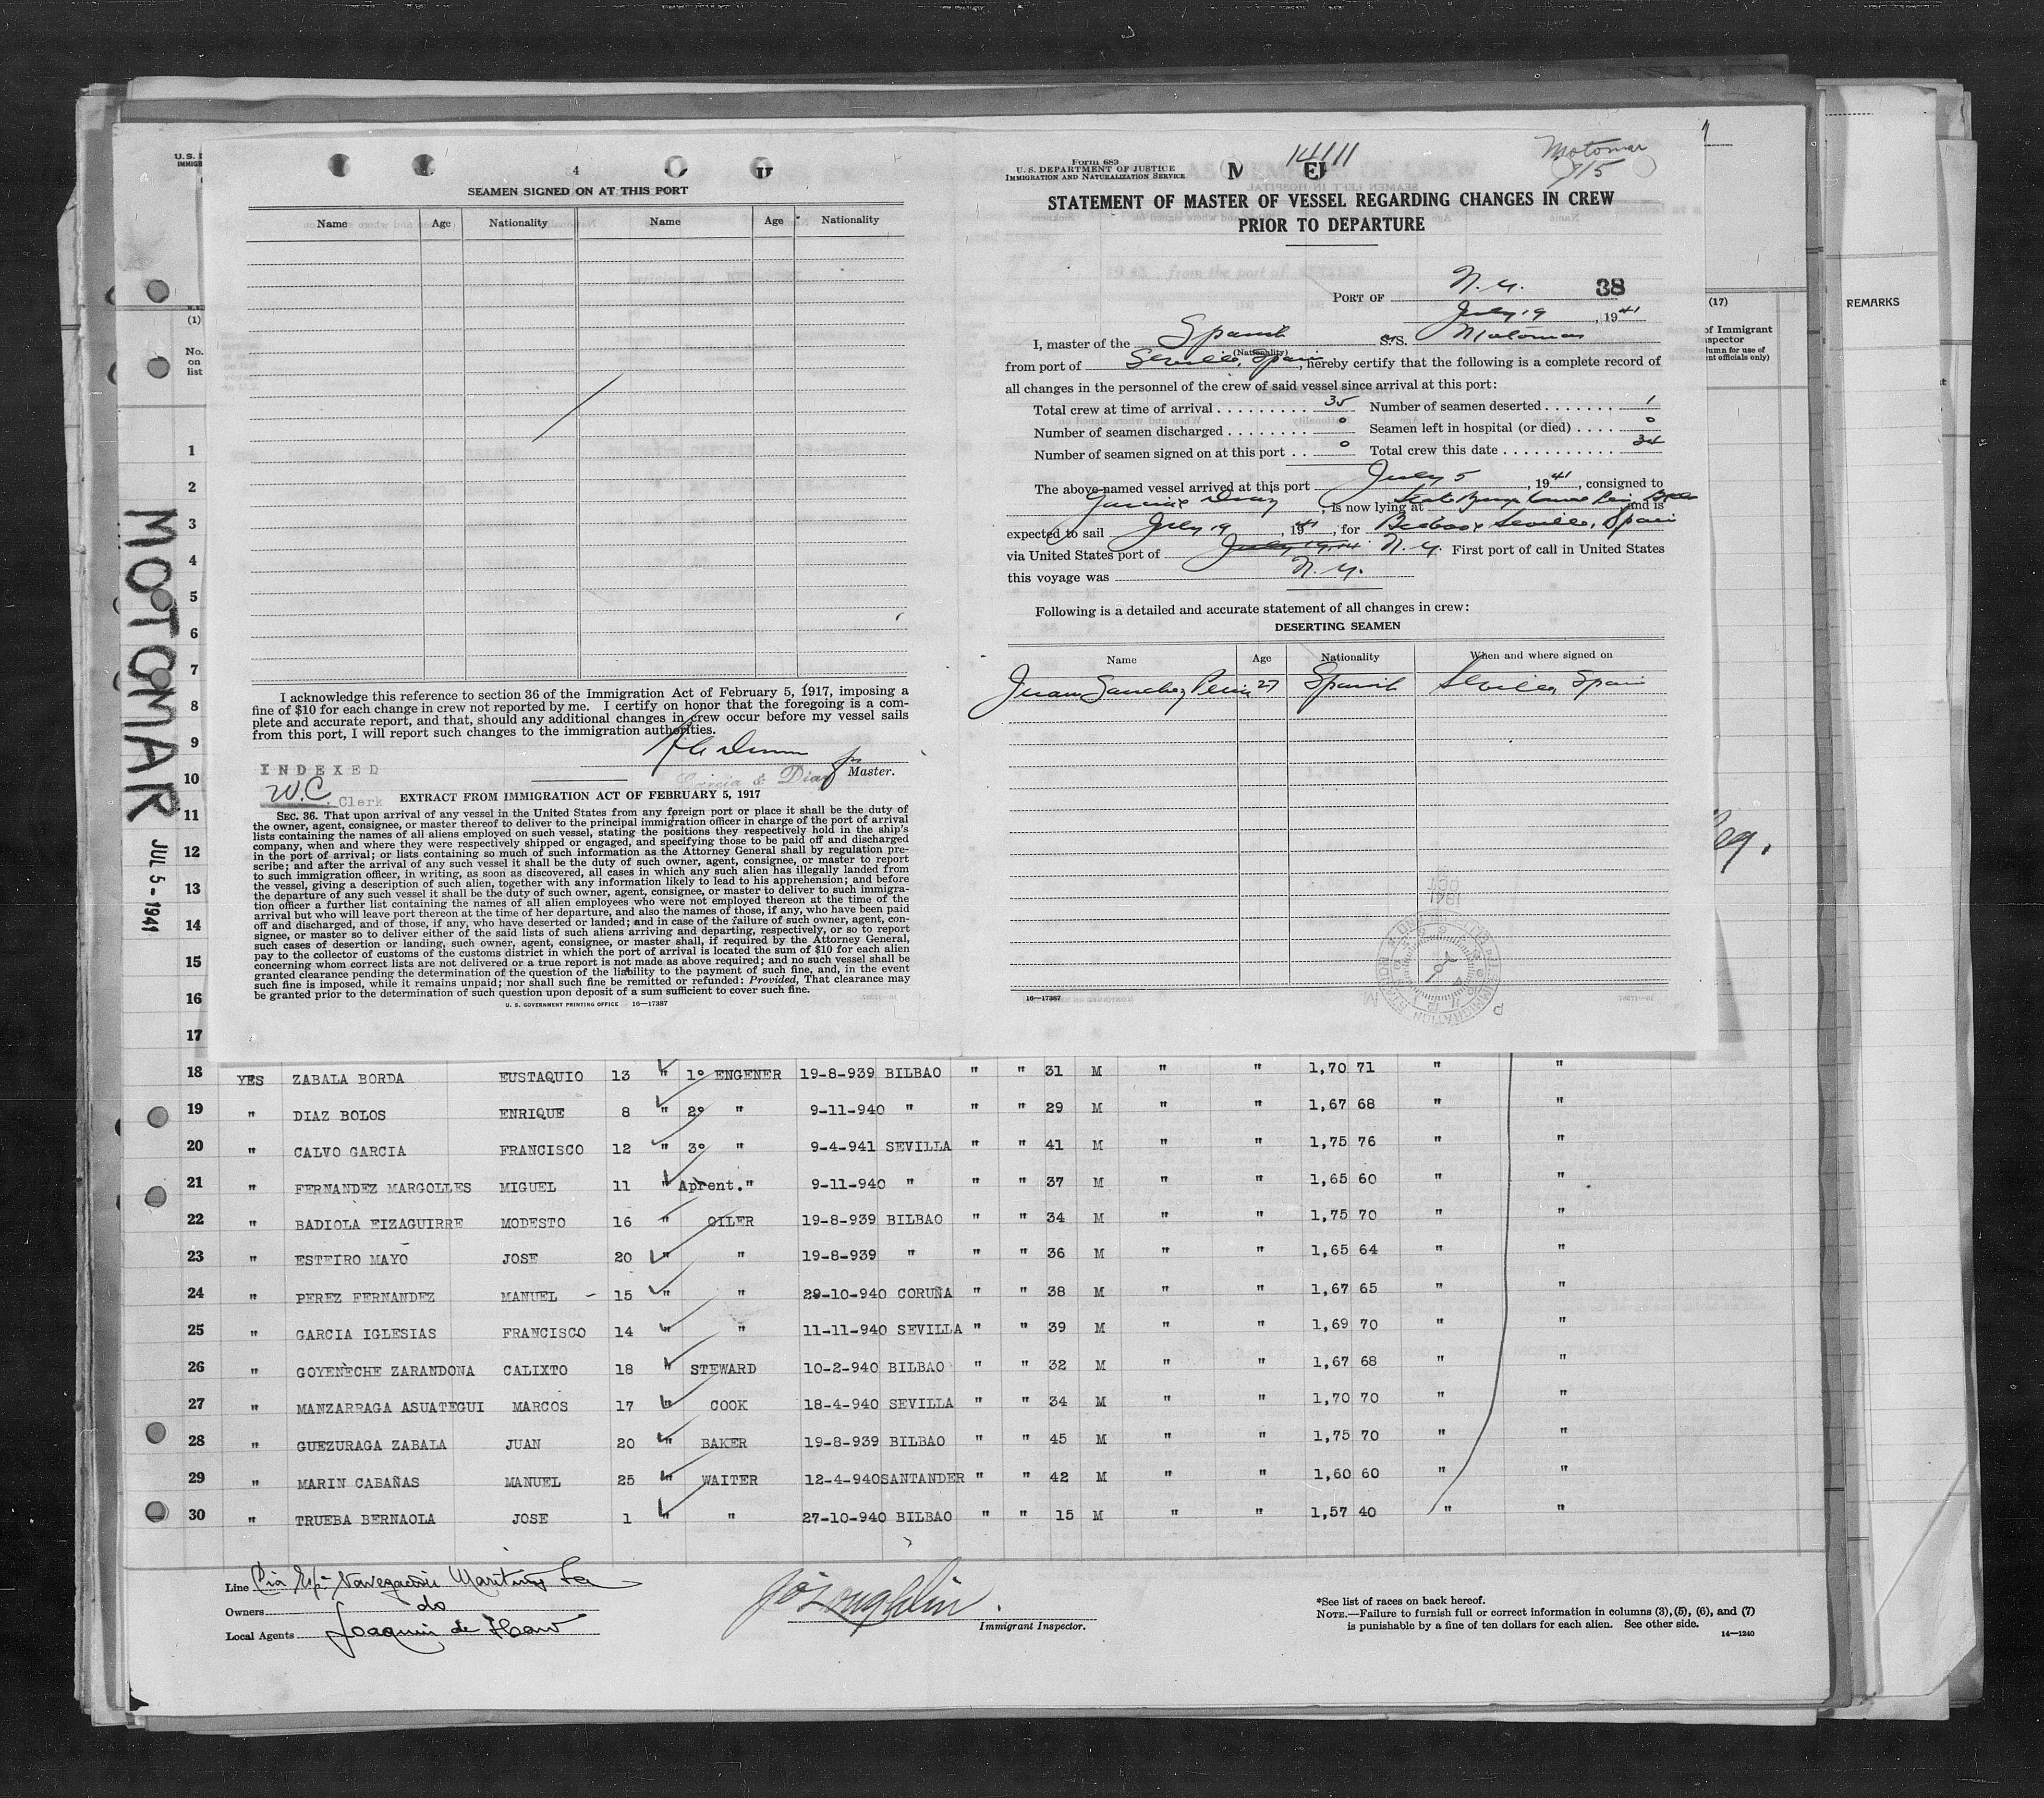 4
SEAMEN SIGNED ON AT THIS PORT
Name Age Nationality Name Age Nationality
I acknowledge this reference to section 36 of the Immigration Act of February 5, 1917, imposing a
fine of $10 for each change in crew not reported by me. I certify on honor that the foregoing is a com-
plete and accurate report, and that, should any additional changes in crew occur before my vessel sails
from this port, I will report such changes to the immigration authorities.
Garcia & Diaz
Master.
INDEXED
W.C. Clerk
EXTRACT FROM IMMIGRATION ACT OF FEBRUARY 5, 1917
SEC. 36. That upon arrival of any vessel in the United States from any foreign port or place it shall be the duty of
the owner, agent, consignee, or master thereof to deliver to the principal immigration officer in charge of the port of arrival
lists containing the names of all aliens employed on such vessel, stating the positions they respectively hold in the ship's
company, when and where they were respectively shipped or engaged, and specifying those to be paid off and discharged
in the port of arrival; or lists containing so much of such information as the Attorney General shall by regulation pre-
scribe; and after the arrival of any such vessel it shall be the duty of such owner, agent, consignee, or master to report
to such immigration officer, in writing, as soon as discovered, all cases in which any such alien has illegally landed from
the vessel, giving a description of such alien, together with any information likely to lead to his apprehension; and before
the departure of any such vessel it shall be the duty of such owner, agent, consignee, or master to deliver to such immigra-
tion officer a further list containing the names of all alien employees who were not employed thereon at the time of the
arrival but who will leave port thereon at the time of her departure, and also the names of those, if any, who have been paid
off and discharged, and of those, if any, who have deserted or landed; and in case of the failure of such owner, agent, con-
signee, or master so to deliver either of the said lists of such aliens arriving and departing, respectively, or so to report
such cases of desertion or landing, such owner, agent, consignee, or master shall, if required by the Attorney General,
pay to the collector of customs of the customs district in which the port of arrival is located the sum of $10 for each alien
concerning whom correct lists are not delivered or a true report is not made as above required; and no such vessel shall be
granted clearance pending the determination of the question of the liability to the payment of such fine, and, in the event
such fine is imposed, while it remains unpaid; nor shall such fine be remitted or refunded: Provided, That clearance may
be granted prior to the determination of such question upon deposit of a sum sufficient to cover such fine.
U. S. GOVERNMENT PRINTING OFFICE 16—17387
Form 689
U. S. DEPARTMENT OF JUSTICE
IMMIGRATION AND NATURALIZATION SERVICE
14111
Motomar
7/5
STATEMENT OF MASTER OF VESSEL REGARDING CHANGES IN CREW
PRIOR TO DEPARTURE
PORT OF N.Y. 38
July 19, 1941
I, master of the Spanish S.S. Motomar
(Nationality)
from port of Seville, Spain, hereby certify that the following is a complete record of
all changes in the personnel of the crew of said vessel since arrival at this port:
Total crew at time of arrival 35 Number of seamen deserted 1
Number of seamen discharged 0 Seamen left in hospital (or died) 0
Number of seamen signed on at this port 0 Total crew this date 34
The above-named vessel arrived at this port July 5, 1941, consigned to
Garcia & Diaz, is now lying at and is
expected to sail July 19, 1941, for Bilbao & Seville, Spain
via United States port of N.Y. First port of call in United States
this voyage was N.Y.
Following is a detailed and accurate statement of all changes in crew:
DESERTING SEAMEN
Name Age Nationality When and where signed on
Juan Sanchez 27 Spanish Seville, Spain
16—17387
(1)
No.
on
list
(17)
of Immigrant
REMARKS
MOTOMAR JUL 5-1941
1
2
3
4
5
6
7
8
9
10
11
12
13
14
15
16
17
18 YES ZABALA BORDA EUSTAQUIO 13 " 1º ENGENER 19-8-939 BILBAO " " 31 M " " 1,70 71 " "
19 " DIAZ BOLOS ENRIQUE 8 " 2º " 9-11-940 " " " 29 M " " 1,67 68 " "
20 " CALVO GARCIA FRANCISCO 12 " 3º " 9-4-941 SEVILLA " " 41 M " " 1,75 76 " "
21 " FERNANDEZ MARGOLLES MIGUEL 11 " Aprent." 9-11-940 " " " 37 M " " 1,65 60 " "
22 " BADIOLA EIZAGUIRRE MODESTO 16 " OILER 19-8-939 BILBAO " " 34 M " " 1,75 70 " "
23 " ESTEIRO MAYO JOSE 20 " " 19-8-939 " " " 36 M " " 1,65 64 " "
24 " PEREZ FERNANDEZ MANUEL - 15 " " 29-10-940 CORUÑA " " 38 M " " 1,67 65 " "
25 " GARCIA IGLESIAS FRANCISCO 14 " " 11-11-940 SEVILLA " " 39 M " " 1,69 70 " "
26 " GOYENECHE ZARANDONA CALIXTO 18 " STEWARD 10-2-940 BILBAO " " 32 M " " 1,67 68 " "
27 " MANZARRAGA ASUATEGUI MARCOS 17 " COOK 18-4-940 SEVILLA " " 34 M " " 1,70 70 " "
28 " GUEZURAGA ZABALA JUAN 20 " BAKER 19-8-939 BILBAO " " 45 M " " 1,75 70 " "
29 " MARIN CABAÑAS MANUEL 25 " WAITER 12-4-940 SANTANDER " " 42 M " " 1,60 60 " "
30 " TRUEBA BERNAOLA JOSE 1 " " 27-10-940 BILBAO " " 15 M " " 1,57 40 " "
Line Cia Esp. Navegación Maritima
Owners do
Local Agents Joaquin de
Immigrant Inspector.
*See list of races on back hereof.
NOTE.—Failure to furnish full or correct information in columns (3), (5), (6), and (7)
is punishable by a fine of ten dollars for each alien. See other side.
14—1240